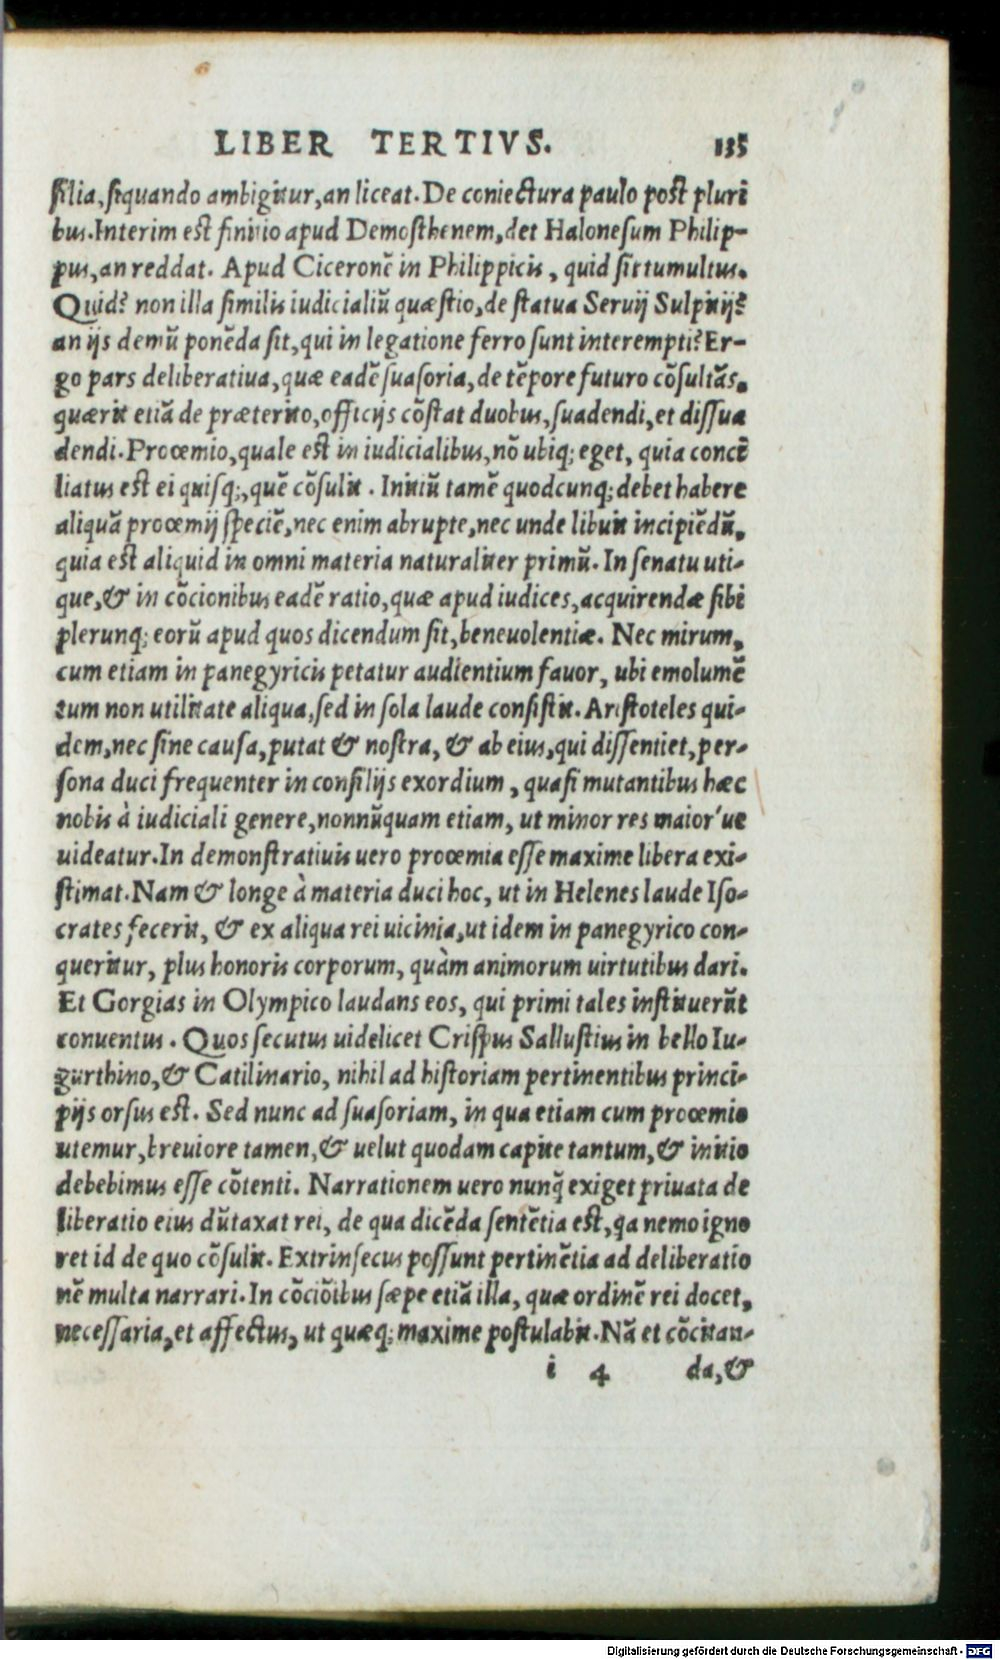 LIBER TERTIVS. 135
silia, siquando ambigitur, an liceat. De coniectura paulo post pluri
bus. Interim est finitio apud Demosthenem, det Halonesum Philip-
pus, an reddat. Apud Ciceronẽ in Philippicis, quid sit tumultus.
Quid? non illa similis iudicialiũ quæstio, de statua Seruij Sulpitij?
an ijs demũ ponẽda sit, qui in legatione ferro sunt interempti? Er-
go pars deliberatiua, quæ eadẽ suasoria, de tẽpore futuro cõsultãs,
quærit etiã de præterito, officijs cõstat duobus, suadendi, et dissua
dendi. Prooemio, quale est in iudicialibus, nõ ubiq; eget, quia conci
liatus est ei quisq;, quẽ cõsulit. Initiũ tamẽ quodcunq; debet habere
aliquã prooemij speciẽ, nec enim abrupte, nec unde libuit incipiẽdũ,
quia est aliquid in omni materia naturaliter primũ. In senatu uti-
que, & in cõcionibus eadẽ ratio, quæ apud iudices, acquirendæ sibi
plerunq; eorũ apud quos dicendum sit, beneuolentiæ. Nec mirum,
cum etiam in panegyricis petatur audientium fauor, ubi emolumẽ
tum non utilitate aliqua, sed in sola laude consistit. Aristoteles qui-
dem, nec sine causa, putat & nostra, & ab eius, qui dissentiet, per-
sona duci frequenter in consilijs exordium, quasi mutantibus hæc
nobis à iudiciali genere, nonnũquam etiam, ut minor res maior'ue
uideatur. In demonstratiuis uero prooemia esse maxime libera exi-
stimat. Nam & longe à materia duci hoc, ut in Helenes laude Iso-
crates fecerit, & ex aliqua rei uicinia, ut idem in panegyrico con-
queritur, plus honoris corporum, quàm animorum uirtutibus dari.
Et Gorgias in Olympico laudans eos, qui primi tales instituerũt
conuentus. Quos secutus uidelicet Crispus Sallustius in bello Iu-
gurthino, & Catilinario, nihil ad historiam pertinentibus princi-
pijs orsus est. Sed nunc ad suasoriam, in qua etiam cum prooemio
utemur, breuiore tamen, & uelut quodam capite tantum, & initio
debebimus esse cõtenti. Narrationem uero nunq̃ exiget priuata de
liberatio eius dũtaxat rei, de qua dicẽda sentẽtia est, q̃a nemo igno
ret id de quo cõsulit. Extrinsecus possunt pertinẽtia ad deliberatio
nẽ multa narrari. In cõciõibus sæpe etiã illa, quæ ordinẽ rei docet,
necessaria, et affectus, ut quæq; maxime postulabit. Nã et cõcitan-
i 4 da, &
Digitalisierung gefördert durch die Deutsche Forschungsgemeinschaft - DFG